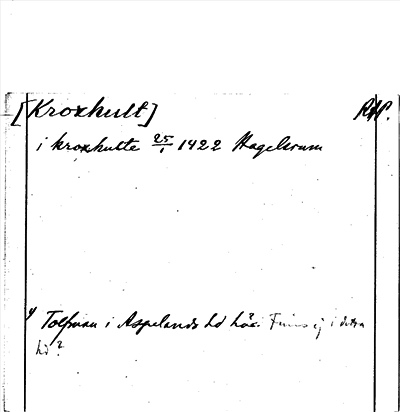 [Kroxhult] RAP.
i kroxhulte 25/1 1422 Hagelsrum
Tolfman i Aspelands hd här. Finns ej i detta
hd?